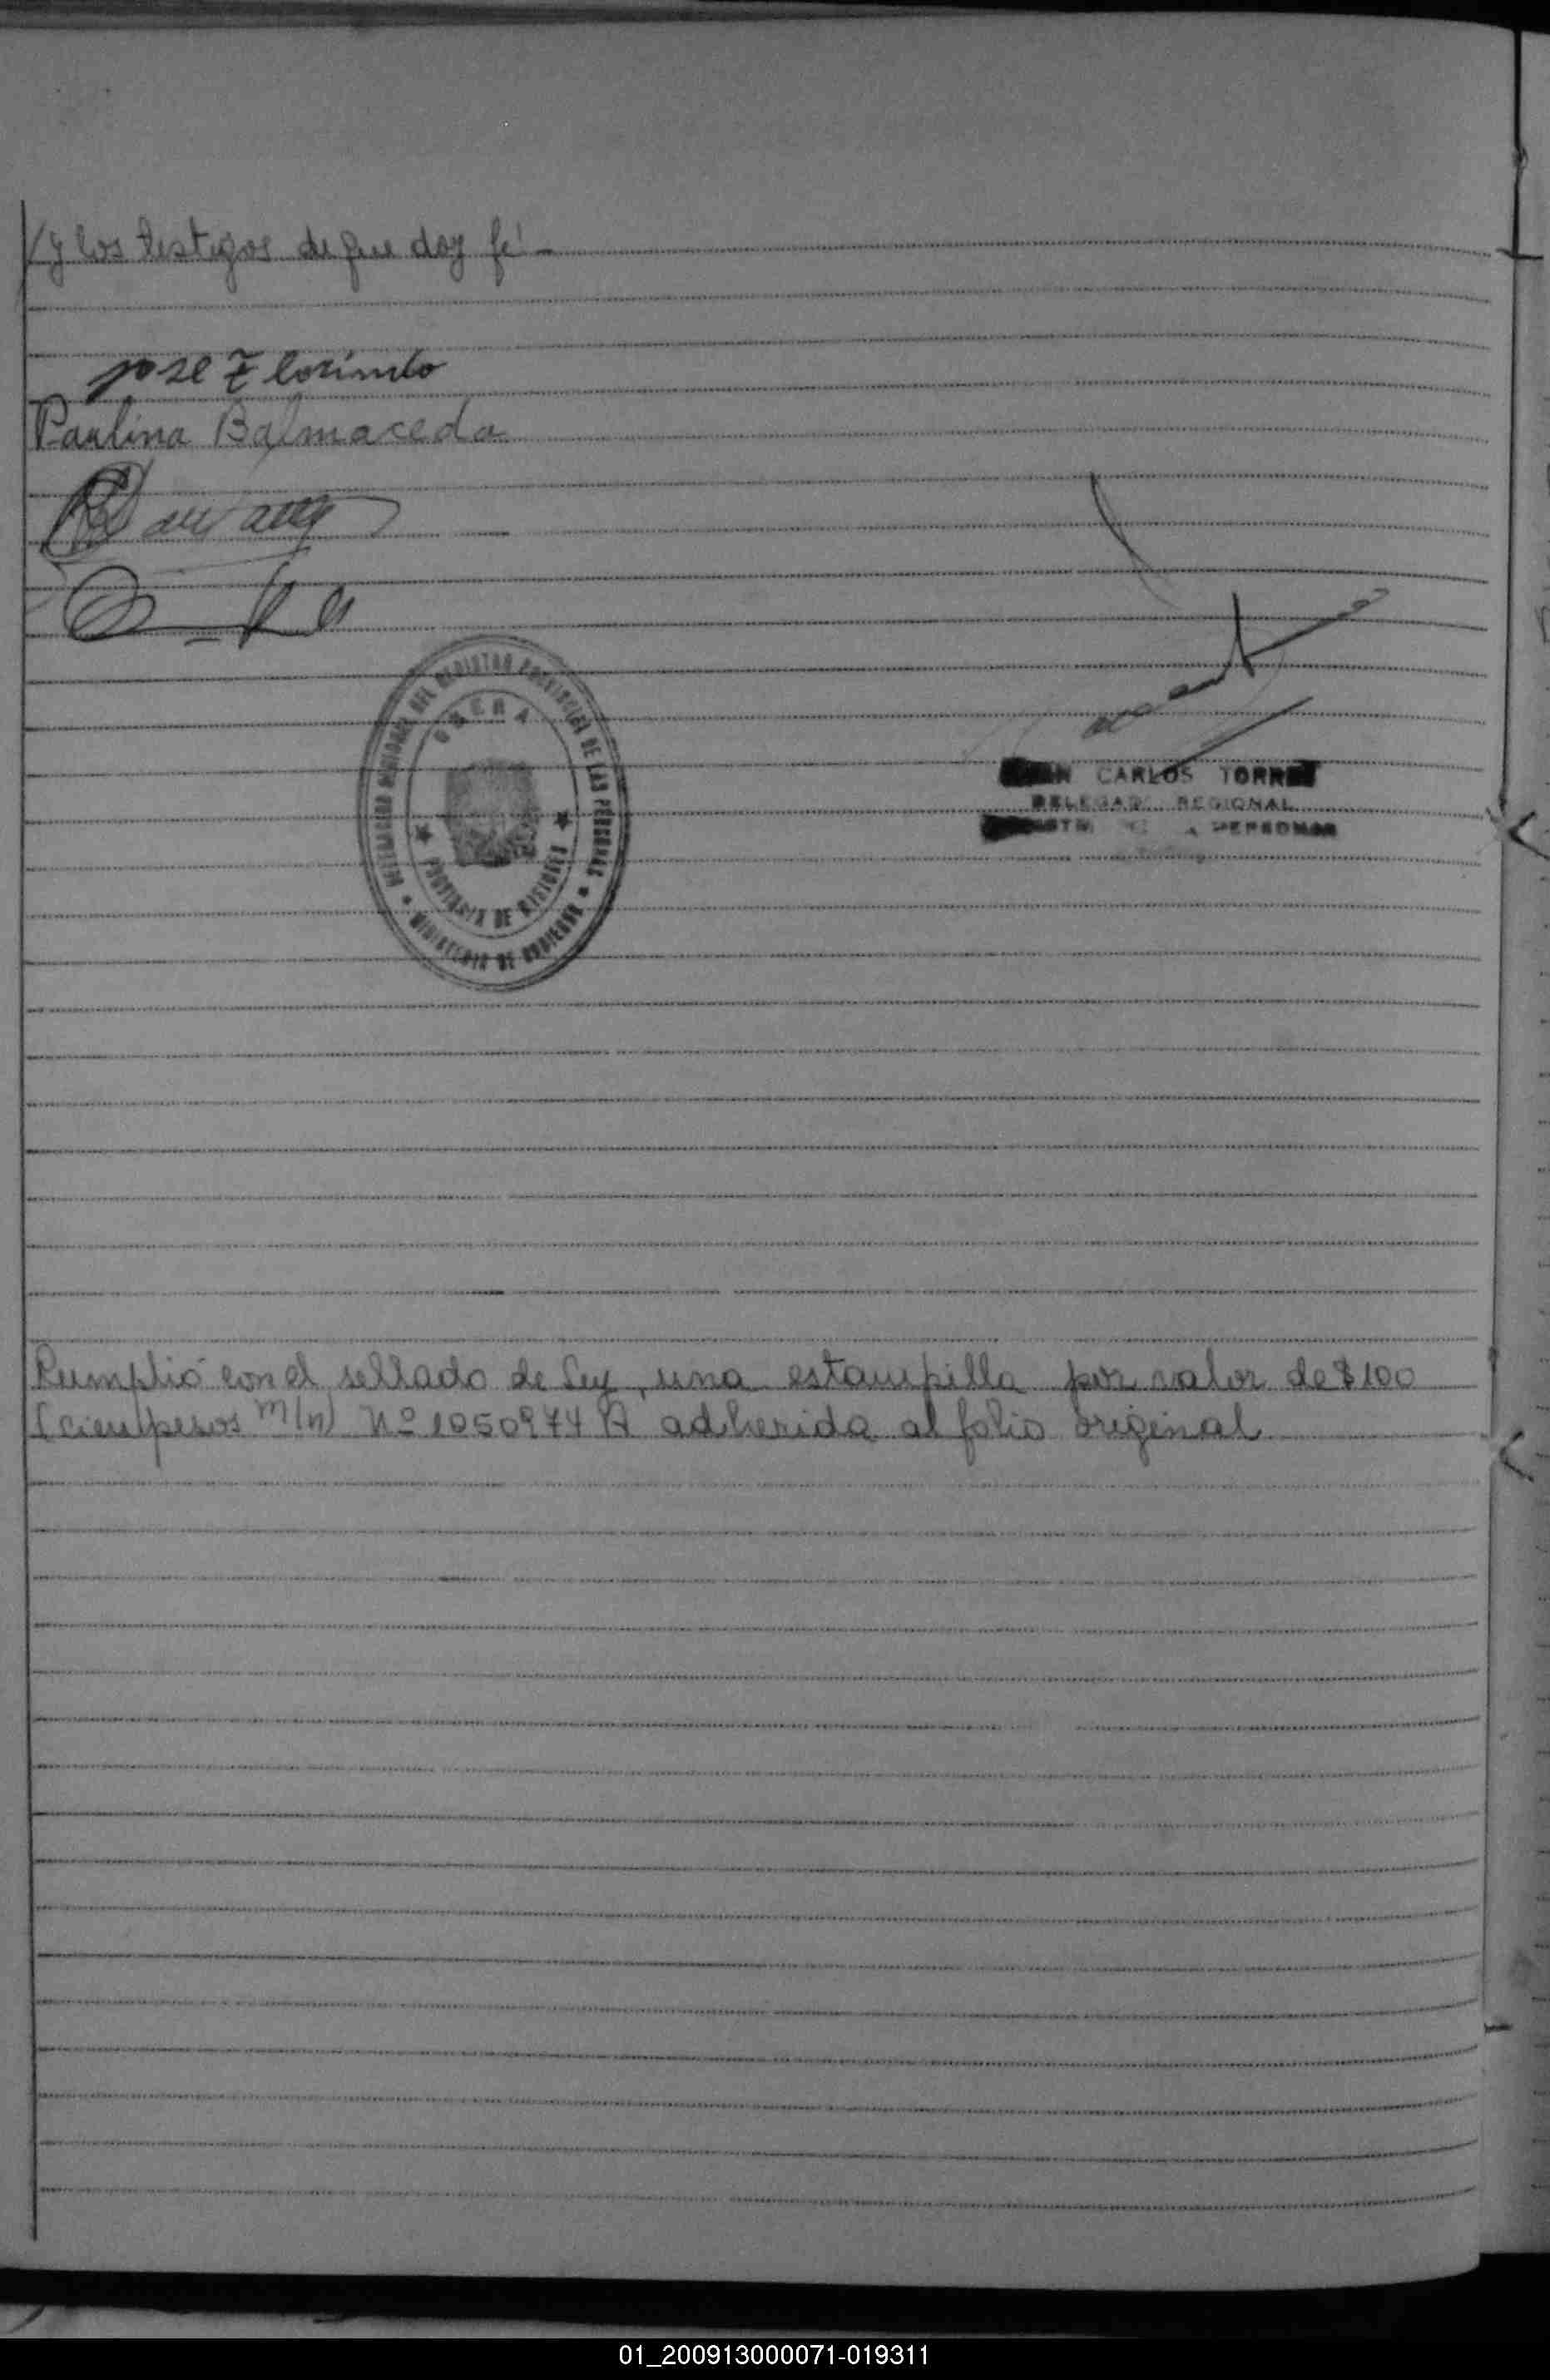 /y los testigos de que doy fé –
jose Florindo
Paulina Balmaceda
OBERA
PROVINCIA DE MISIONES
DELEGACION REGIONAL DEL REGISTRO PROVINCIAL DE LAS PERSONAS
MINISTERIO DE GOBIERNO
CARLOS TORRES
DELEGADO REGIONAL
PERSONAS
Cumplió con el sellado de Ley, una estampilla por valor de $100
(cien pesos m/n) Nº 1050974 A adherida al folio original
01_200913000071-019311